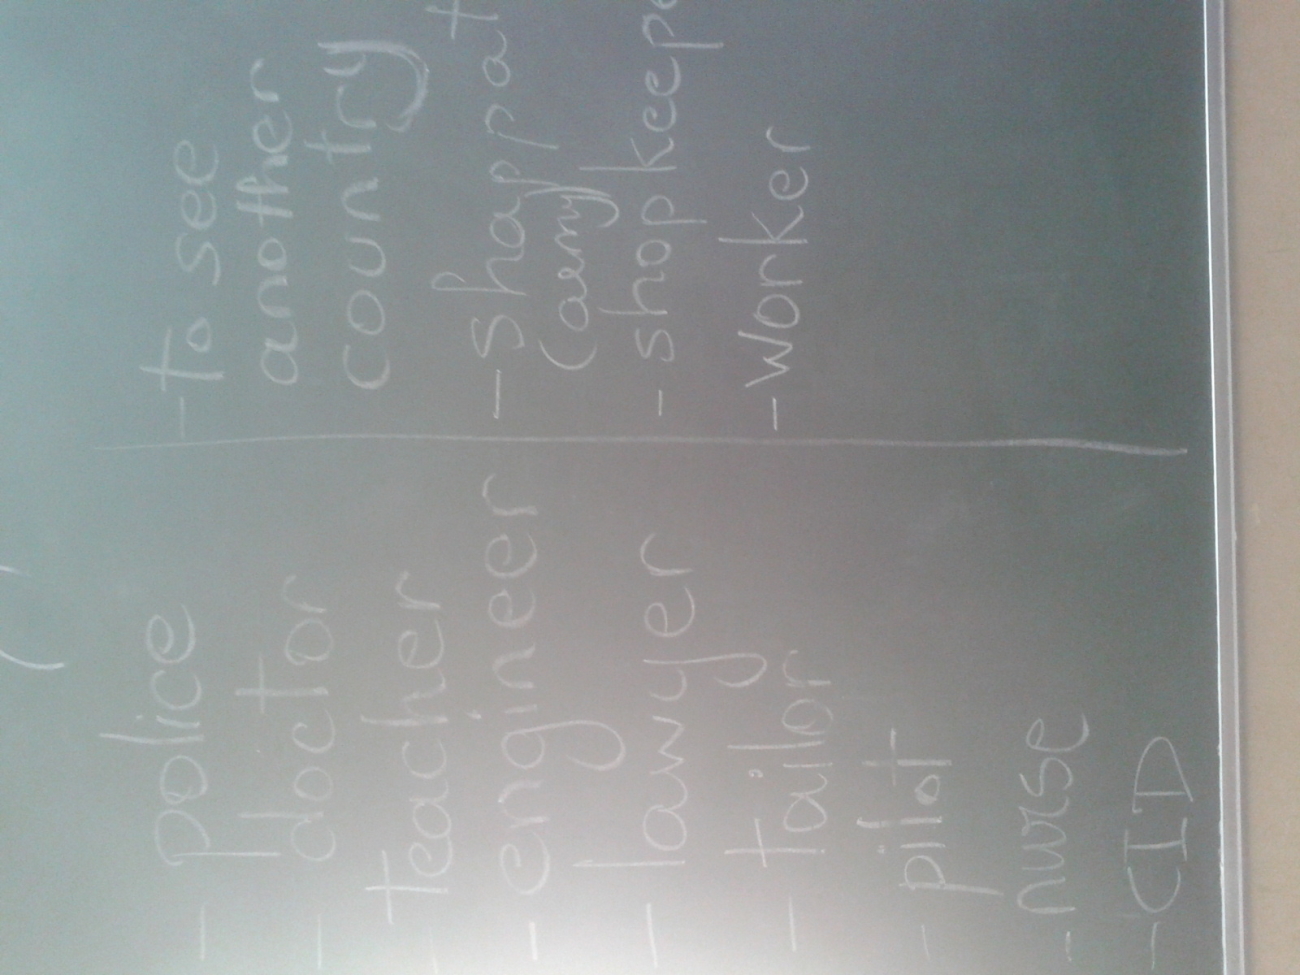 - police
- doctor
- teacher
- engineer
- lawyer
- tailor
- pilot
- nurse
- CID
- to see
another
country
- shop at
(army
- shop keepe
- worker